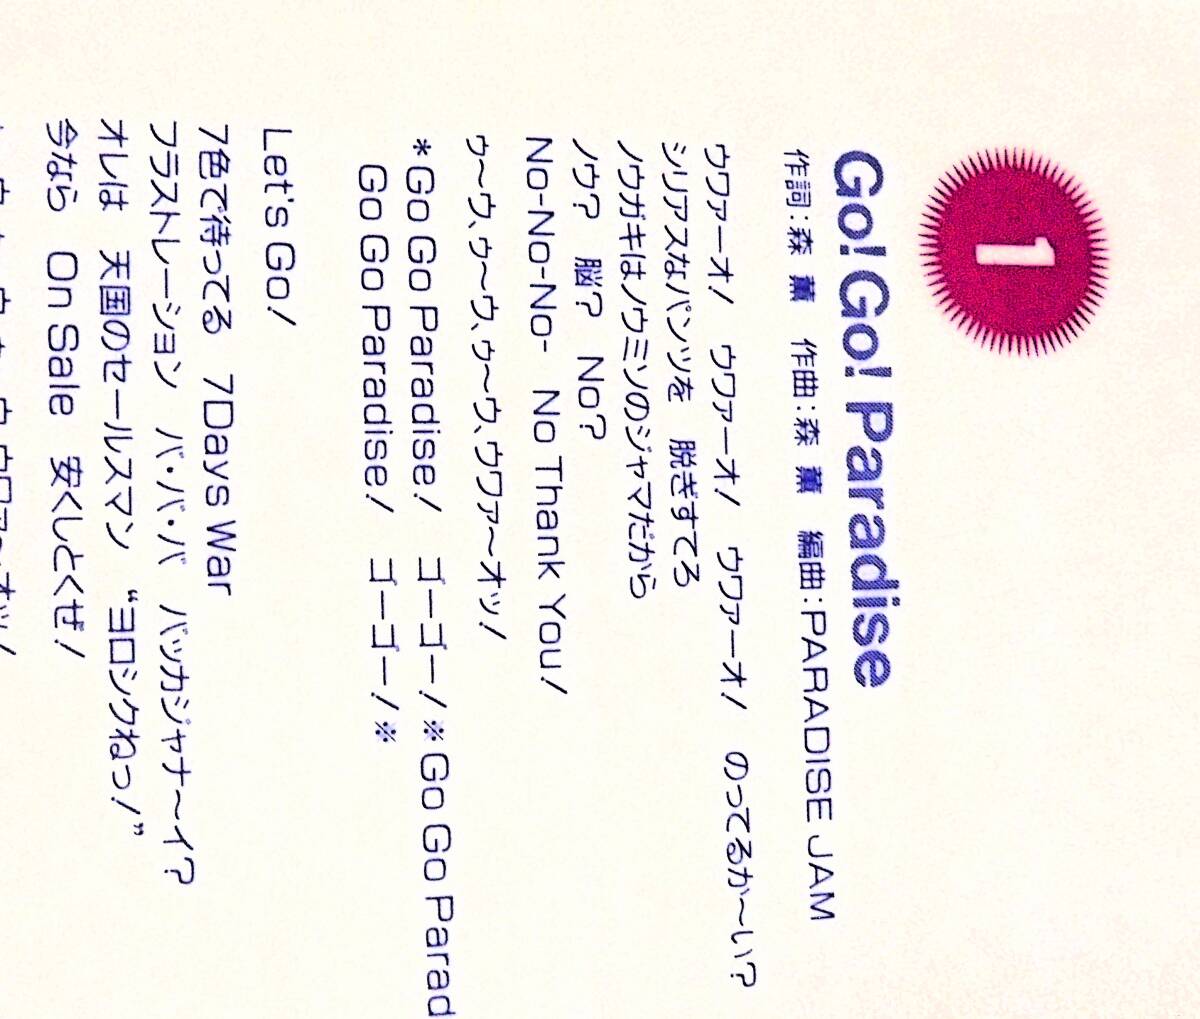 1
Go! Go! Paradise
作詞：森 薫　作曲：森 薫　編曲：PARADISE JAM
ウワァーオ！　ウワァーオ！　ウワァーオ！　のってるか〜い？
シリアスなパンツを　脱ぎすてろ
ノウガキはノウミソのジャマだから
ノウ？　脳？　No？
No-No-No-No-　No Thank You！
ゥ〜ウ、ゥ〜ウ、ゥ〜ウ、ウワァ〜オッ！
*Go Go Paradise！　ゴーゴー！※Go Go Parad
Go Go Paradise！　ゴーゴー！※
Let's Go！
7色で待ってる　7Days War
フラストレーション　バ・バ・バ　バッカジャナ〜イ？
オレは　天国のセールスマン　“ヨロシクねっ！”
今なら　On Sale　安くしとくぜ！